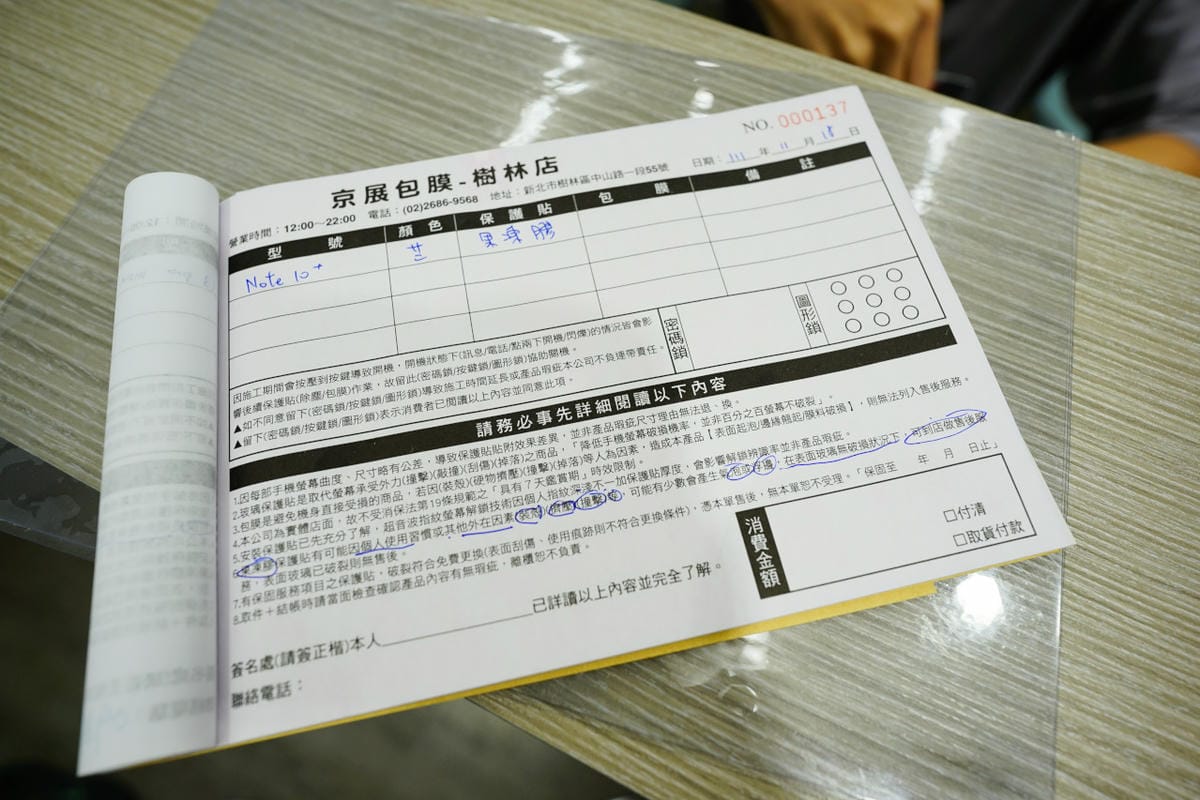 NO. 000137
京展包膜-樹林店
日期：111年11月18日
營業時間：12:00～22:00 電話：(02)2686-9568 地址：新北市樹林區中山路一段55號
型號 顏色 保護貼 包膜 備註
Note 10+ 果凍膠
因施工期間會按壓到按鍵導致開機，開機狀態下(訊息/電話/點兩下開機/閃爍)的情況皆會影
響後續保護貼(除塵/包膜)作業，故留此(密碼鎖/按鍵鎖/圖形鎖)協助關機。
▲如不同意留下(密碼鎖/按鍵鎖/圖形鎖)導致施工時間延長或產品瑕疵本公司不負連帶責任。
▲留下(密碼鎖/按鍵鎖/圖形鎖)表示消費者已閱讀以上內容並同意此項。
密碼鎖
圖形鎖
請務必事先詳細閱讀以下內容
1.因每部手機螢幕曲度、尺寸略有公差，導致保護貼貼附效果差異，並非產品瑕疵尺寸理由無法退、換。
2.玻璃保護貼是取代螢幕承受外力(撞擊)(敲撞)(刮傷)(掉落)之商品，「降低手機螢幕破損機率，並非百分之百螢幕不破裂」。
3.包膜是避免機身直接受損的商品，若因(裝殼)(硬物擠壓)(撞擊)(掉落)等人為因素，造成本產品【表面起泡/邊緣翹起/膜料破損】，則無法列入售後服務。
4.本公司為實體店面，故不受消保法第19條規範之「具有7天鑑賞期」時效限制。
5.安裝保護貼已先充分了解，超音波指紋螢幕解鎖技術因個人指紋深淺不一加保護貼厚度，會影響解鎖辨識率並非產品瑕疵。
6.果凍膠保護貼有可能因個人使用習慣或其他外在因素(裝殼)(擠壓)(撞擊)等，可能有少數會產生氣泡或浮邊，在表面玻璃無破損狀況下，可到店做售後服
務，表面玻璃已破裂則無售後。
7.有保固服務項目之保護貼，破裂符合免費更換(表面刮傷、使用痕跡則不符合更換條件)，憑本單售後，無本單恕不受理。「保固至 年 月 日止」
8.取件＋結帳時請當面檢查確認產品內容有無瑕疵，離櫃恕不負責。
消費金額
□付清
□取貨付款
簽名處(請簽正楷)本人 已詳讀以上內容並完全了解。
聯絡電話：